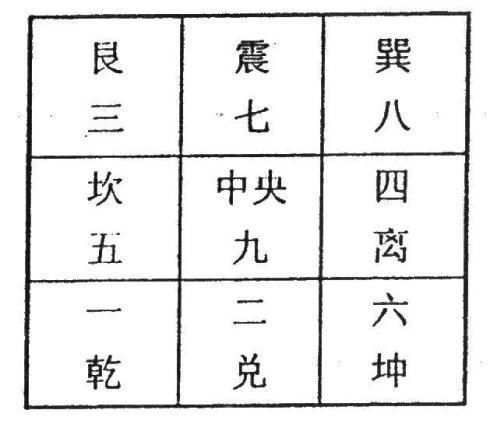 艮 震 巽
三 七 八
坎 中央 四
五 九 离
一 二 六
乾 兑 坤